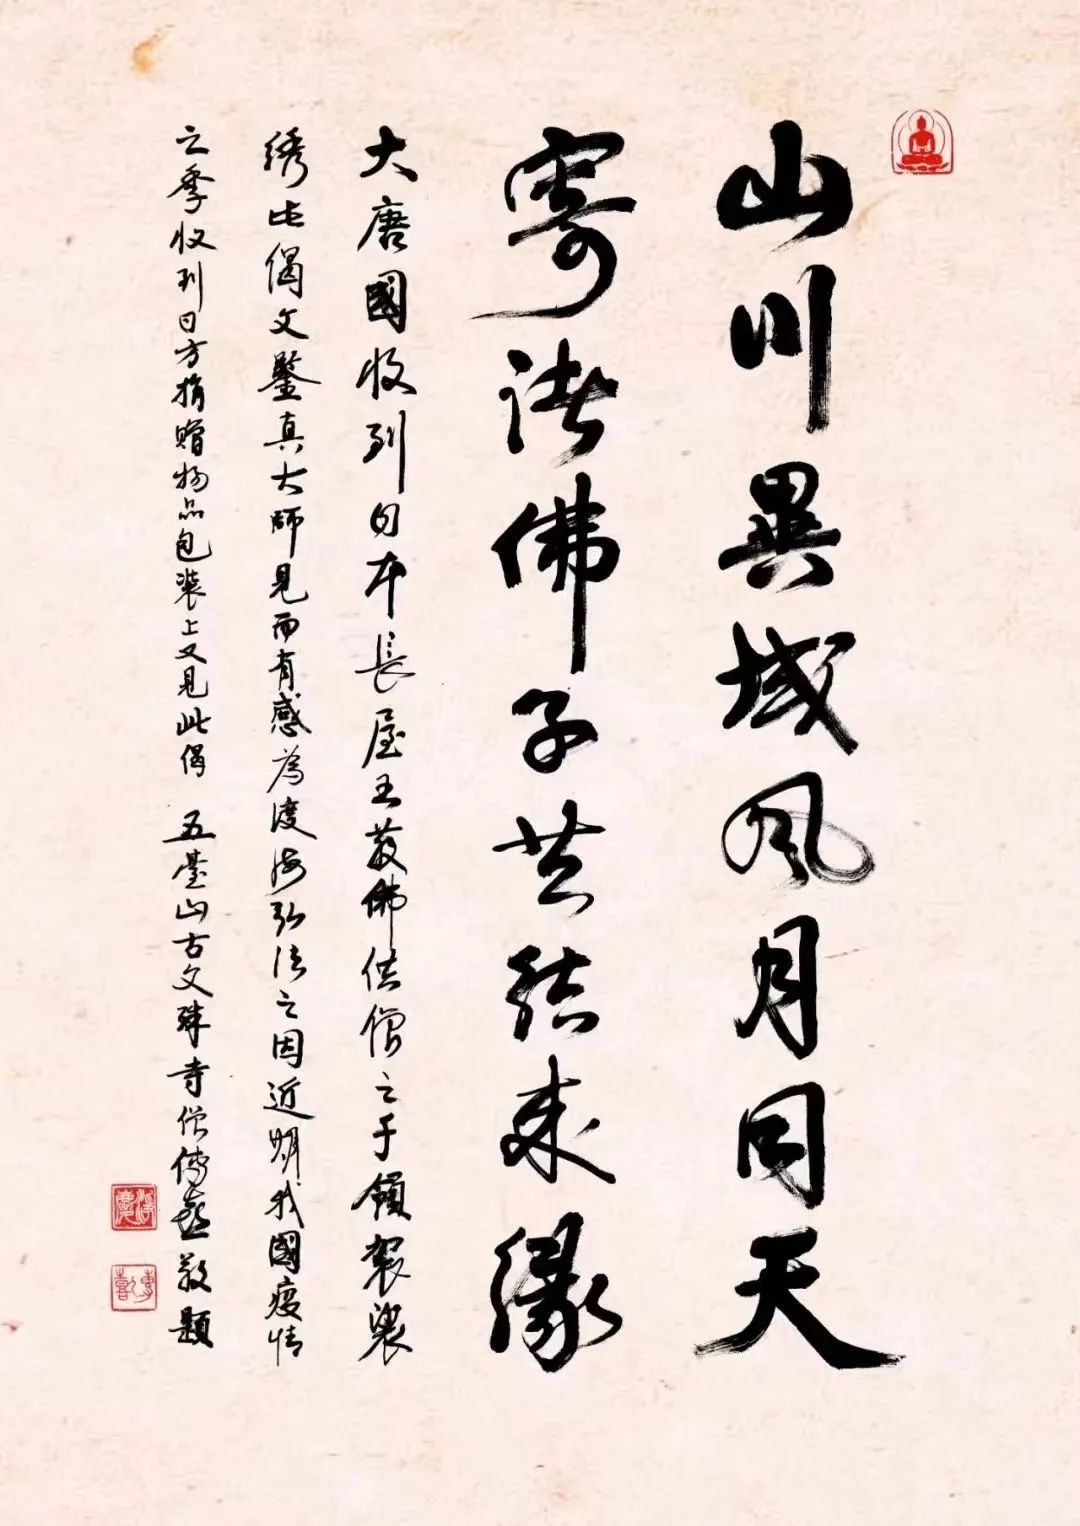 山川異域風月同天
寄诸佛子共结来缘
大唐國收到日本長屋王敬佛供僧之千領袈裟
绣此偈文鑒真大師見而有感為渡海弘法之因近期我國疫情
之季收到日方捐赠物品包装上又見此偈 五臺山古文殊寺僧傳喜敬題
傳喜